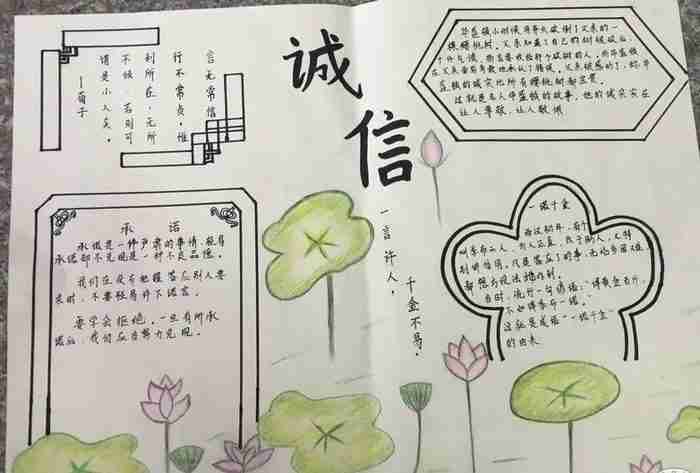 诚信
言无常信
行不常贞，惟
利所在，无所
不倾，若则可
谓是小人矣。
—荀子
华盛顿小时候用斧头砍倒了父亲的一
棵樱桃树。父亲知道了自己的树被砍后，
在父亲面前勇敢地承认了错误。父亲被感动了，称华
盛顿的诚实比所有樱桃树都宝贵。
这就是名人华盛顿的故事，他的诚实实在
让人尊敬，让人敬佩
一言许人，
千金不易。
承诺
承诺是一件严肃的事情，
承诺却不兑现是一种不良品德。
我们在没有把握答应别人要
求时，不要轻易许下诺言。
要学会拒绝，一旦有所承
诺后，我们应当努力兑现。
一诺千金
西汉初年，有个
叫季布的人，为人正直，乐于助人，
别讲信用。凡是答应了的事，无论多困难，
都想方设法办到。
当时，流行一句谚语："得黄金百斤，
不如得季布一诺。"
这就是成语"一诺千金"
的由来